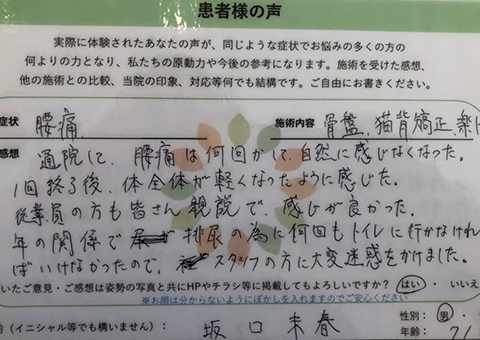 患者様の声
実際に体験されたあなたの声が、同じような症状でお悩みの多くの方の
何よりの力となり、私たちの原動力や今後の参考になります。施術を受けた感想、
他の施術との比較、当院の印象、対応等何でも結構です。ご自由にお書きください。
症状 腰痛 施術内容 骨盤、猫背矯正、楽ト
感想 通院して、腰痛は何回かして、自然に感じなくなった。
1回終了後、体全体が軽くなったように感じた。
従業員の方も皆さん親説で、感じが良かった。
年の関係で 排尿の為に何回もトイレに行かなけれ
ばいけなかったので、スタッフの方に大変迷惑をかけました。
いたご意見・ご感想は姿勢の写真と共にHPやチラシ等に掲載してもよろしいですか? はい ・ いいえ
※お顔は分からないようにぼかしを入れますのでご安心ください
前(イニシャル等でも構いません): 坂口 性別: 男・
年齢: 71